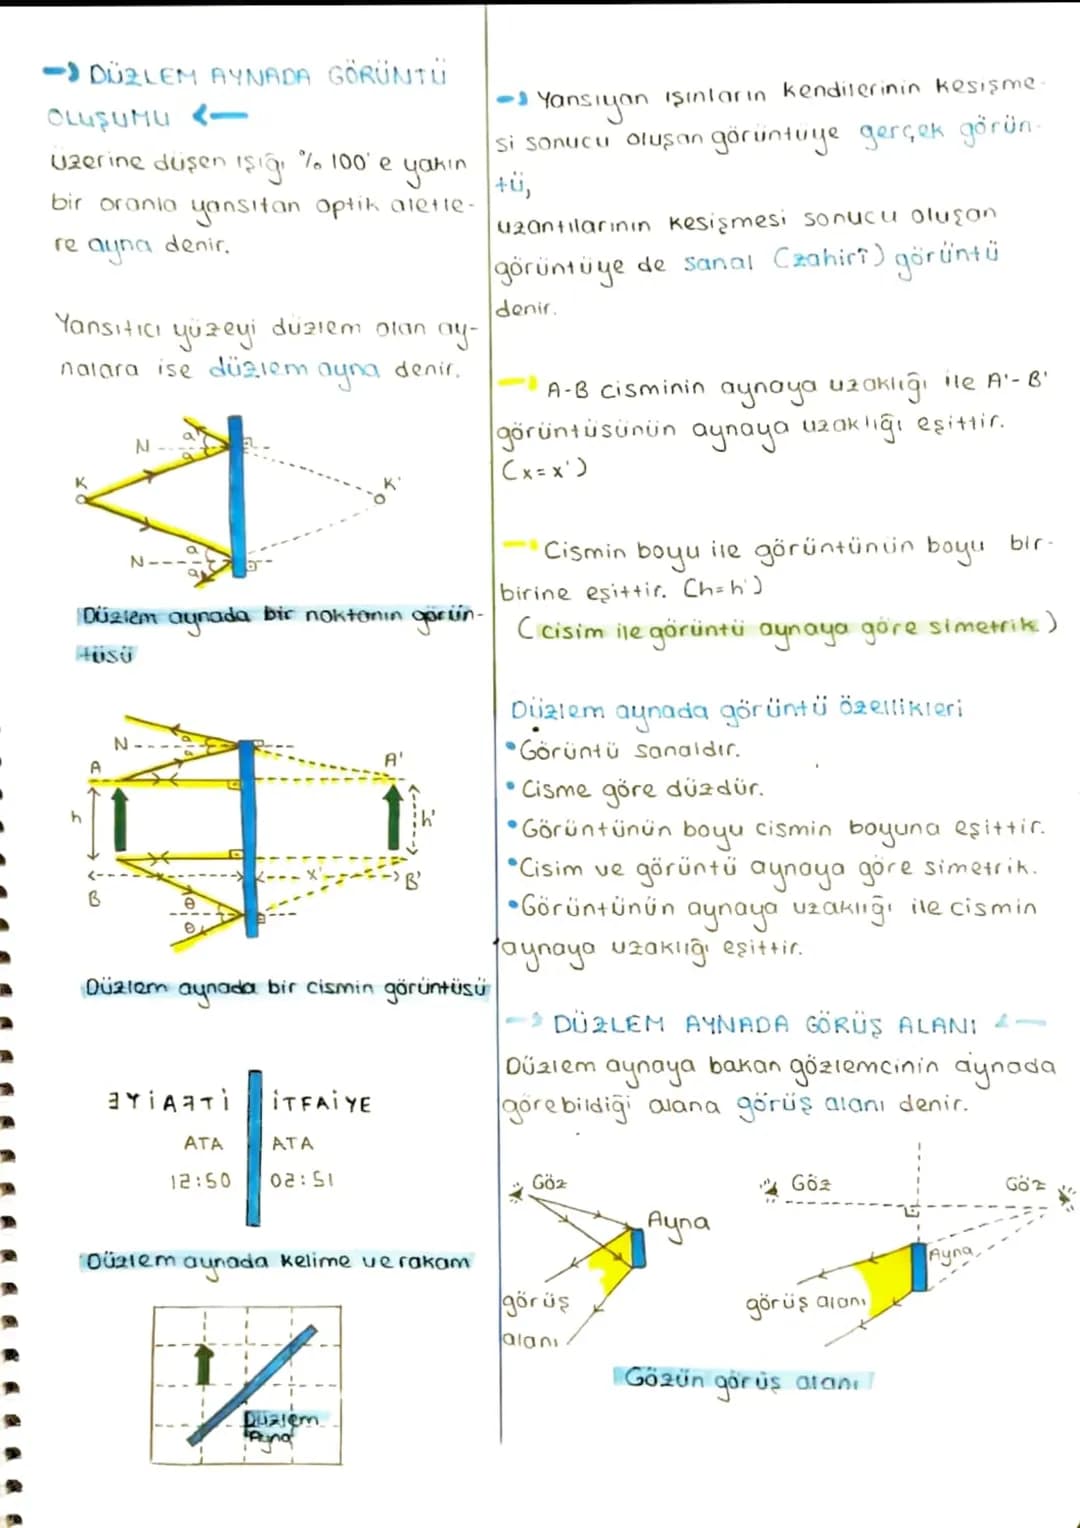 DÜZLEM AYNADA GÖRÜNTÜ
OLUŞUMU
üzerine düşen ışığı %100'e yakın
bir oranla yansıtan optik aletle-
re ayna denir.
Yansıtıcı yüzeyi düzlem olan ay-
nalara ise düzlem ayna denir.
N
a
a
K
K'
N
a
a
Düzlem aynada bir noktanın görün-
tüsü
N
a
a
A
A'
h
h'
x'
B
B'
θ
θ
Düzlem aynada bir cismin görüntüsü
ƎYİAꟻTİ İTFAİYE
ATA ATA
12:50 02:51
Düzlem aynada kelime ve rakam
Düzlem
Ayna
Yansıyan ışınların kendilerinin kesişme-
si sonucu oluşan görüntüye gerçek görün-
tü,
uzantılarının kesişmesi sonucu oluşan
görüntüye de sanal (zahirî) görüntü
denir.
A-B cisminin aynaya uzaklığı ile A'-B'
görüntüsünün aynaya uzaklığı eşittir.
(x=x')
Cismin boyu ile görüntünün boyu bir-
birine eşittir. (h=h')
(cisim ile görüntü aynaya göre simetrik)
Düzlem aynada görüntü özellikleri
•Görüntü sanaldır.
•Cisme göre düzdür.
•Görüntünün boyu cismin boyuna eşittir.
•Cisim ve görüntü aynaya göre simetrik.
•Görüntünün aynaya uzaklığı ile cismin
aynaya uzaklığı eşittir.
DÜZLEM AYNADA GÖRÜŞ ALANI
Düzlem aynaya bakan gözlemcinin aynada
görebildiği alana görüş alanı denir.
Göz
Ayna
görüş
alanı
Göz
Göz
Ayna
görüş alanı
Gözün görüş alanı